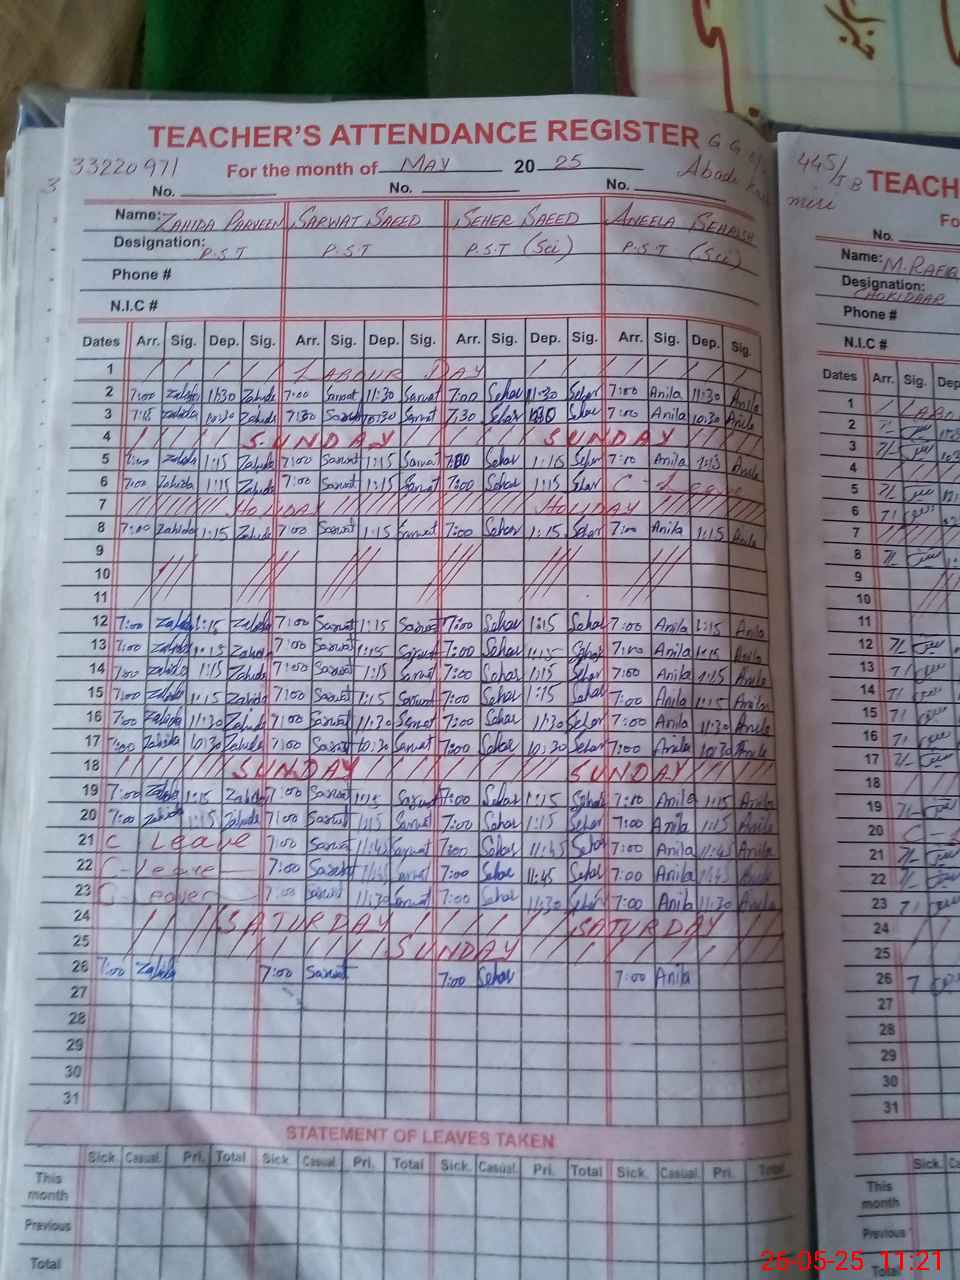 TEACHER'S ATTENDANCE REGISTER G G
33220971 For the month of MAY 20 25 Abadi
No. No. No.
Name: ZAHIDA PARVEEN SARWAT SAEED SEHER SAEED ANEELA
Designation: P.S.T P.S.T P.S.T (Sci) P.S.T (Sci)
Phone #
N.I.C #
Dates Arr. Sig. Dep. Sig. Arr. Sig. Dep. Sig. Arr. Sig. Dep. Sig. Arr. Sig. Dep. Sig.
1 LABOUR DAY
2 7:00 Zahida 11:30 Zahida 7:00 Sarwat 11:30 Sarwat 7:00 Sehar 11:30 Sehar 7:00 Anila 11:30 Anila
3 Zahida 10:30 Zahida Sarwat 10:30 Sarwat 7:30 Sehar Sehar 7:00 Anila 10:30 Anila
4 SUNDAY SUNDAY
5 7:00 Zahida 1:15 Zahida 7:00 Sarwat 1:15 Sarwat 7:00 Sehar 1:15 Sehar 7:00 Anila 1:15 Anila
6 7:00 Zahida 1:15 Zahida 7:00 Sarwat 1:15 Sarwat 7:00 Sehar 1:15 Sehar C-Leave
7 HOLIDAY HOLIDAY
8 7:00 Zahida 1:15 Zahida 7:00 Sarwat 1:15 Sarwat 7:00 Sehar 1:15 Sehar 7:00 Anila 1:15 Anila
9
10
11
12 7:00 Zahida 1:15 Zahida 7:00 Sarwat 1:15 Sarwat 7:00 Sehar 1:15 Sehar 7:00 Anila 1:15 Anila
13 7:00 Zahida 1:15 Zahida 7:00 Sarwat 1:15 Sarwat 7:00 Sehar 1:15 Sehar 7:00 Anila 1:15 Anila
14 7:00 Zahida 1:15 Zahida 7:00 Sarwat 1:15 Sarwat 7:00 Sehar 1:15 Sehar 7:00 Anila 1:15 Anila
15 7:00 Zahida 1:15 Zahida 7:00 Sarwat 1:15 Sarwat 7:00 Sehar 1:15 Sehar 7:00 Anila 1:15 Anila
16 7:00 Zahida 11:30 Zahida 7:00 Sarwat 11:30 Sarwat 7:00 Sehar 11:30 Sehar 7:00 Anila 11:30 Anila
17 7:00 Zahida 10:30 Zahida 7:00 Sarwat 10:30 Sarwat 7:00 Sehar 10:30 Sehar 7:00 Anila 10:30 Anila
18 SUNDAY SUNDAY
19 7:00 Zahida 1:15 Zahida 7:00 Sarwat 1:15 Sarwat 7:00 Sehar 1:15 Sehar 7:00 Anila 1:15 Anila
20 7:00 Zahida 1:15 Zahida 7:00 Sarwat 1:15 Sarwat 7:00 Sehar 1:15 Sehar 7:00 Anila 1:15 Anila
21 C Leave 7:00 Sarwat 11:45 Sarwat 7:00 Sehar 11:45 Sehar 7:00 Anila 11:45 Anila
22 C-Leave 7:00 Sarwat 11:45 Sarwat 7:00 Sehar 11:45 Sehar 7:00 Anila 11:45 Anila
23 7:00 Sarwat 11:30 Sarwat 7:00 Sehar 11:30 Sehar 7:00 Anila 11:30 Anila
24 SATURDAY SATURDAY
25 SUNDAY
26 7:00 Zahida 7:00 Sarwat 7:00 Sehar 7:00 Anila
27
28
29
30
31
STATEMENT OF LEAVES TAKEN
Sick. Casual. Pri. Total Sick. Casual. Pri. Total Sick. Casual. Pri. Total Sick. Casual. Pri. Total
This month
Previous
Total
445/ J B TEACH
miri Fo
No.
Name: M.RAFIQ
Designation: CHOKIDAAR
Phone #
N.I.C #
Dates Arr. Sig. Dep
1
2
3
4
5
6
7
8
9
10
11
12
13
14
15
16
17
18
19
20
21
22
23
24
25
26
27
28
29
30
31
Sick. Ca
This month
Previous
Total
26-05-25 11:21